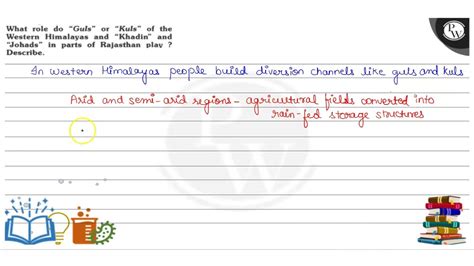 What role do "Guls" or "Kuls" of the
Western Himalayas and "Khadin" and
"Johads" in parts of Rajasthan play ?
Describe.
In western Himalayas people build diversion channels like guls and kuls
Arid and semi-arid regions - agricultural fields converted into
rain-fed storage structures